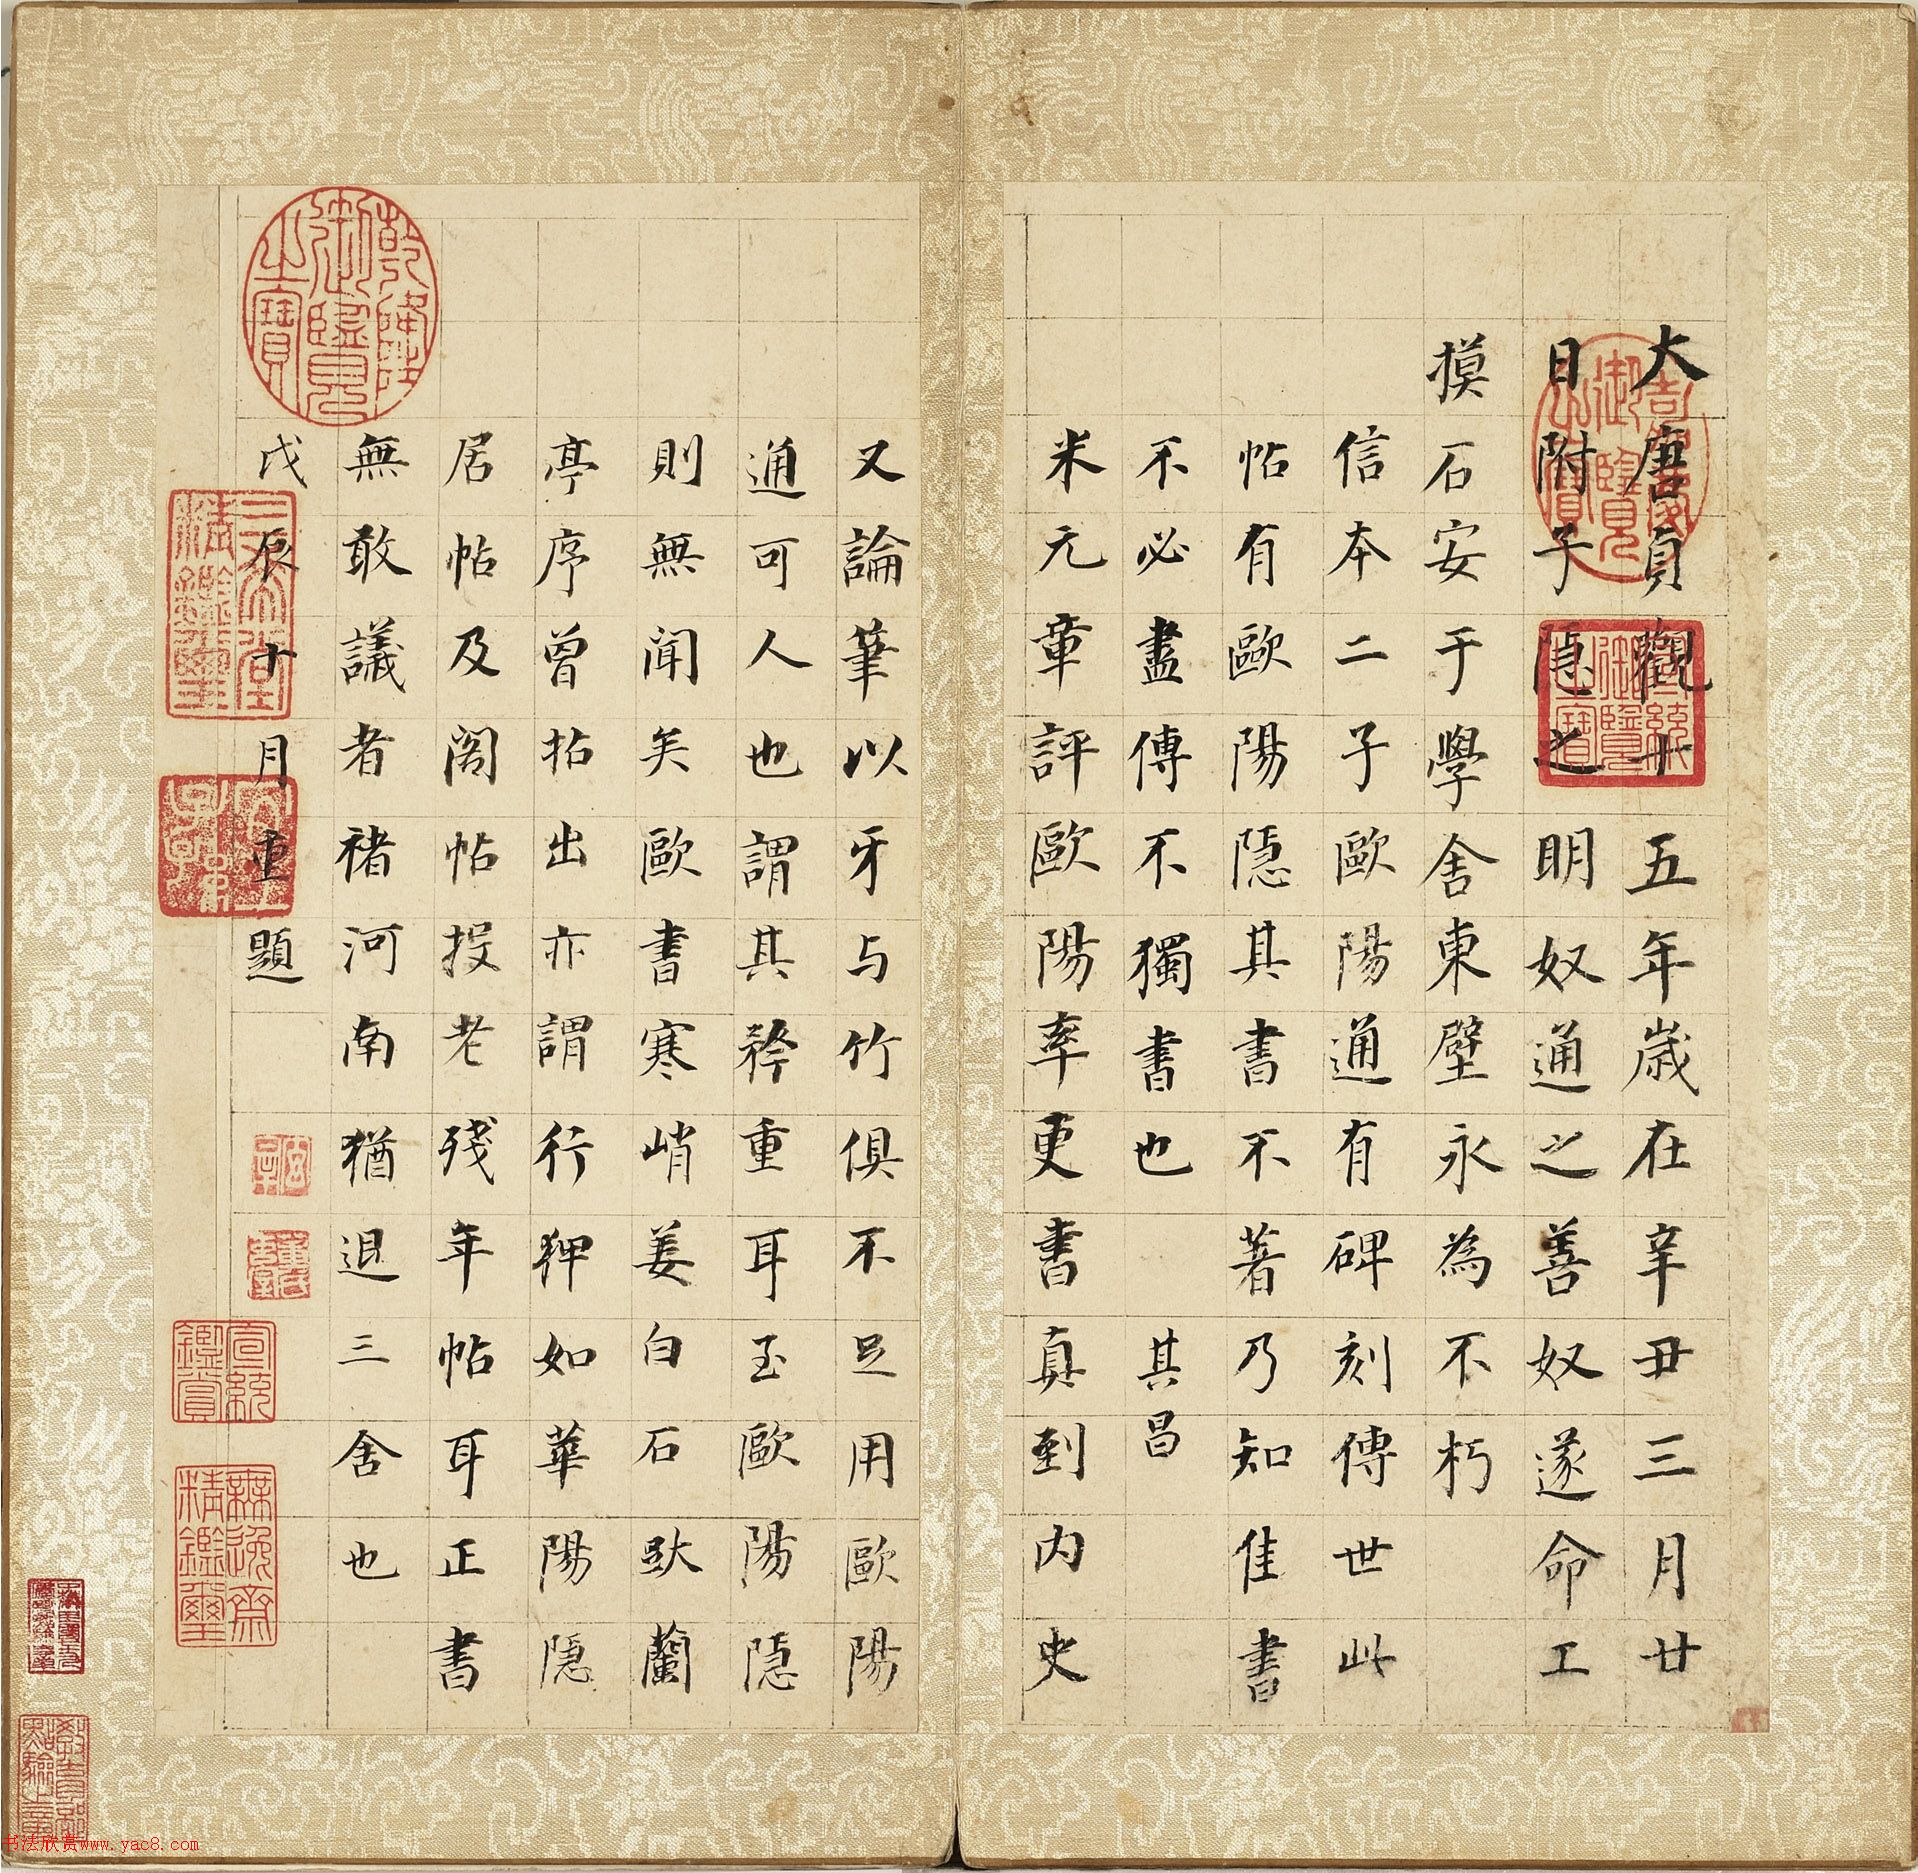 大唐貞觀十五年歲在辛丑三月廿
日附子隱之明奴通之善奴遂命工
摸石安于學舍東壁永為不朽
信本二子歐陽通有碑刻傳世此
帖有歐陽隱其書不著乃知佳書
不必盡傳不獨書也 其昌
米元章評歐陽率更書真到內史
又論筆以牙与竹俱不足用歐陽
通可人也謂其矜重耳至歐陽隱
則無闻矣歐書寒峭姜白石跋蘭
亭序曾拓出亦謂行狎如華陽隱
居帖及阁帖投老殘年帖耳正書
無敢議者褚河南猶退三舍也
戊辰十月重題
乾隆御覽之寶
嘉慶御覽之寶
宣統御覽之寶
三希堂精鑑璽
宜子孫
宣統鑑賞
無逸齋精鑑璽
书法欣赏www.yac8.com